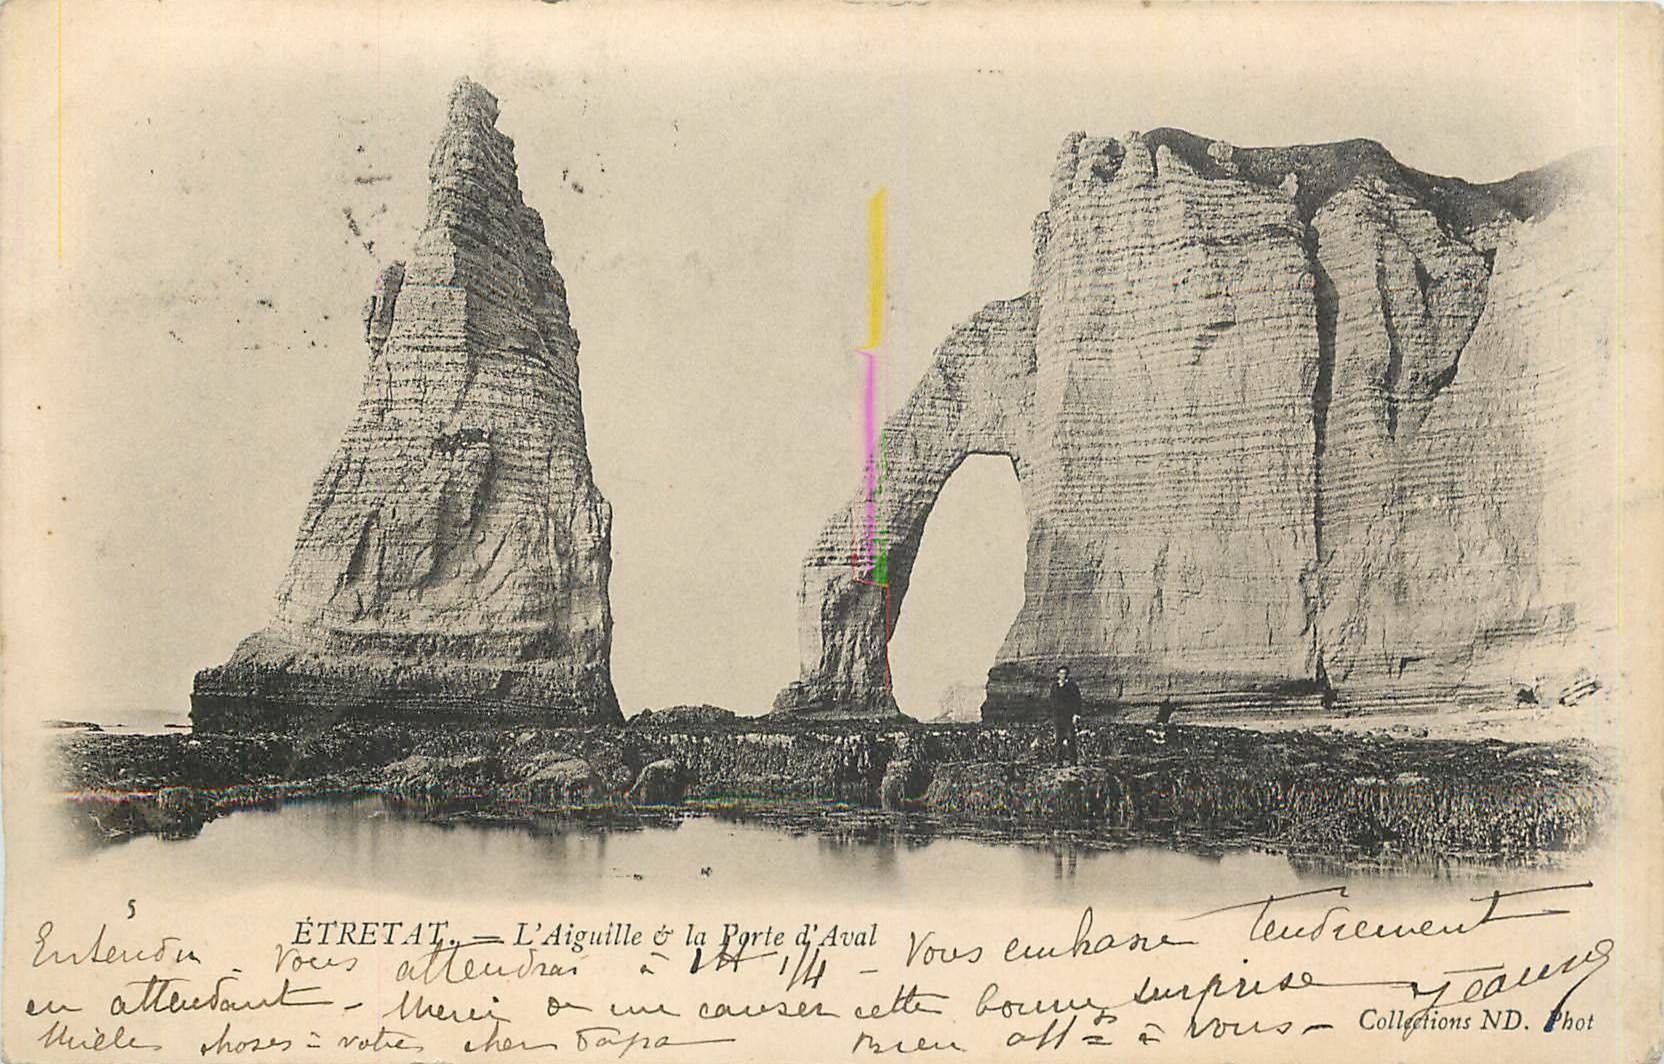 ÉTRETAT. — L'Aiguille & la Porte d'Aval
Entendu - Vous attendrai à 1H 1/4 - Vous embrasse tendrement
en attendant - Merci de me causer cette bonne surprise Jeanne
Mille choses à votre cher Papa Bien aff à vous -
Collections ND. Phot